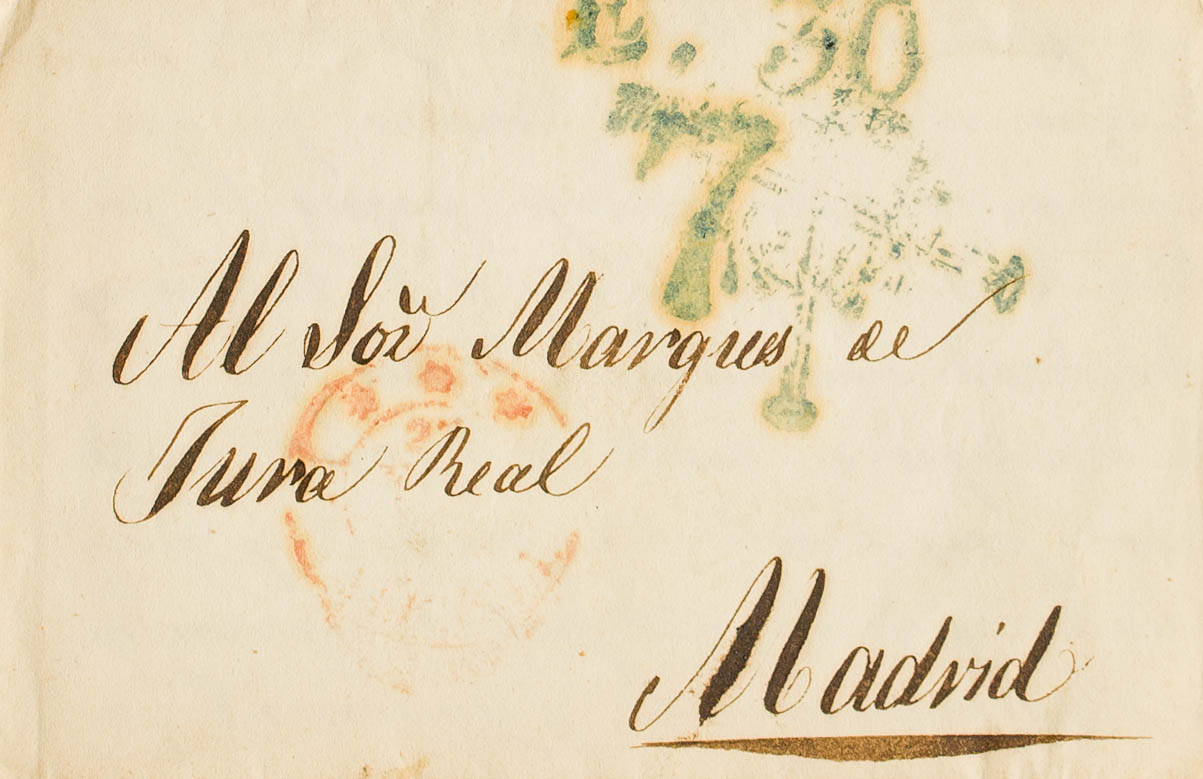 E. 30
7
Al Sor Marques de
Jura Real
Madrid